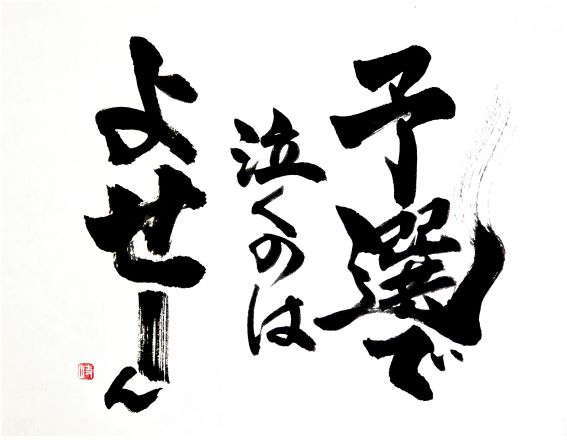 予選で
泣くのは
よせーん